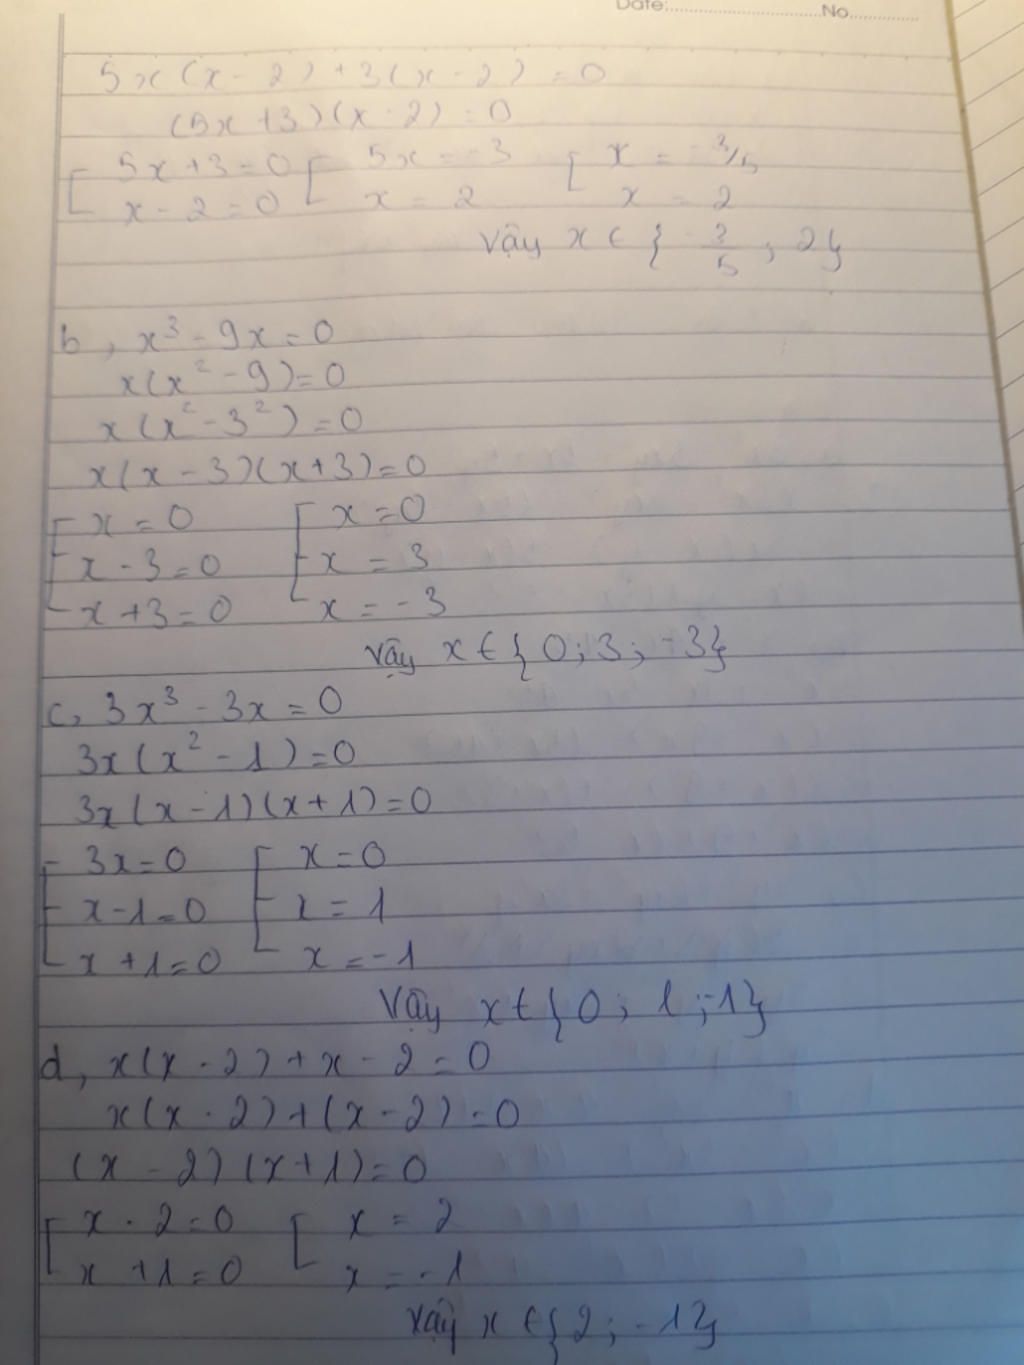 Date:.............................No.............
5x(x - 2) + 3(x - 2) = 0
(5x + 3)(x - 2) = 0
[ 5x + 3 = 0 [ 5x = -3 [ x = -3/5
x - 2 = 0 x = 2 x = 2
Vậy x ∈ { -3/5 ; 2}
b, x³ - 9x = 0
x(x² - 9) = 0
x(x² - 3²) = 0
x(x - 3)(x + 3) = 0
[ x = 0 [ x = 0
x - 3 = 0 x = 3
x + 3 = 0 x = -3
Vậy x ∈ { 0 ; 3 ; -3}
c, 3x³ - 3x = 0
3x(x² - 1) = 0
3x(x - 1)(x + 1) = 0
[ 3x = 0 [ x = 0
x - 1 = 0 x = 1
x + 1 = 0 x = -1
Vậy x ∈ { 0 ; 1 ; -1}
d, x(x - 2) + x - 2 = 0
x(x - 2) + (x - 2) = 0
(x - 2)(x + 1) = 0
[ x - 2 = 0 [ x = 2
x + 1 = 0 x = -1
Vậy x ∈ { 2 ; -1}